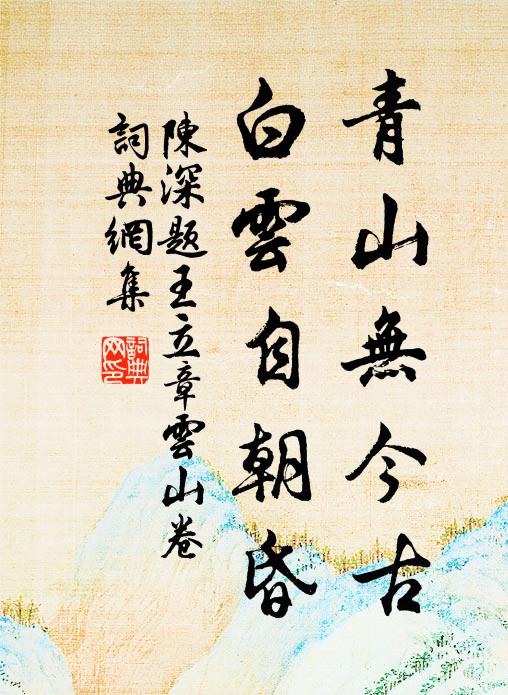 青山無今古
白雲自朝昏
陳深題王立章雲山卷
詞典網集
詞典网印